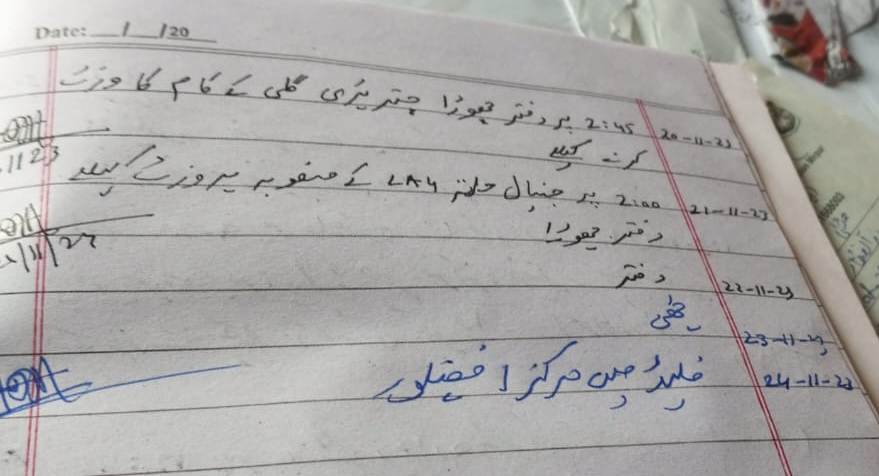 Date: __/__/20
20-11-23 2:45 پر دفتر چھوڑا چتر پڑی گلی کے کام کا وزٹ
کرنے کیلئے
21-11-23 2:00 پر جنہال حلقہ LA4 کے منصوبہ پر وزٹ کیلئے
دفتر چھوڑا
22-11-23 دفتر
23-11-23 چھٹی
24-11-23 فیلڈ میں مرکز افضلپور
11 23